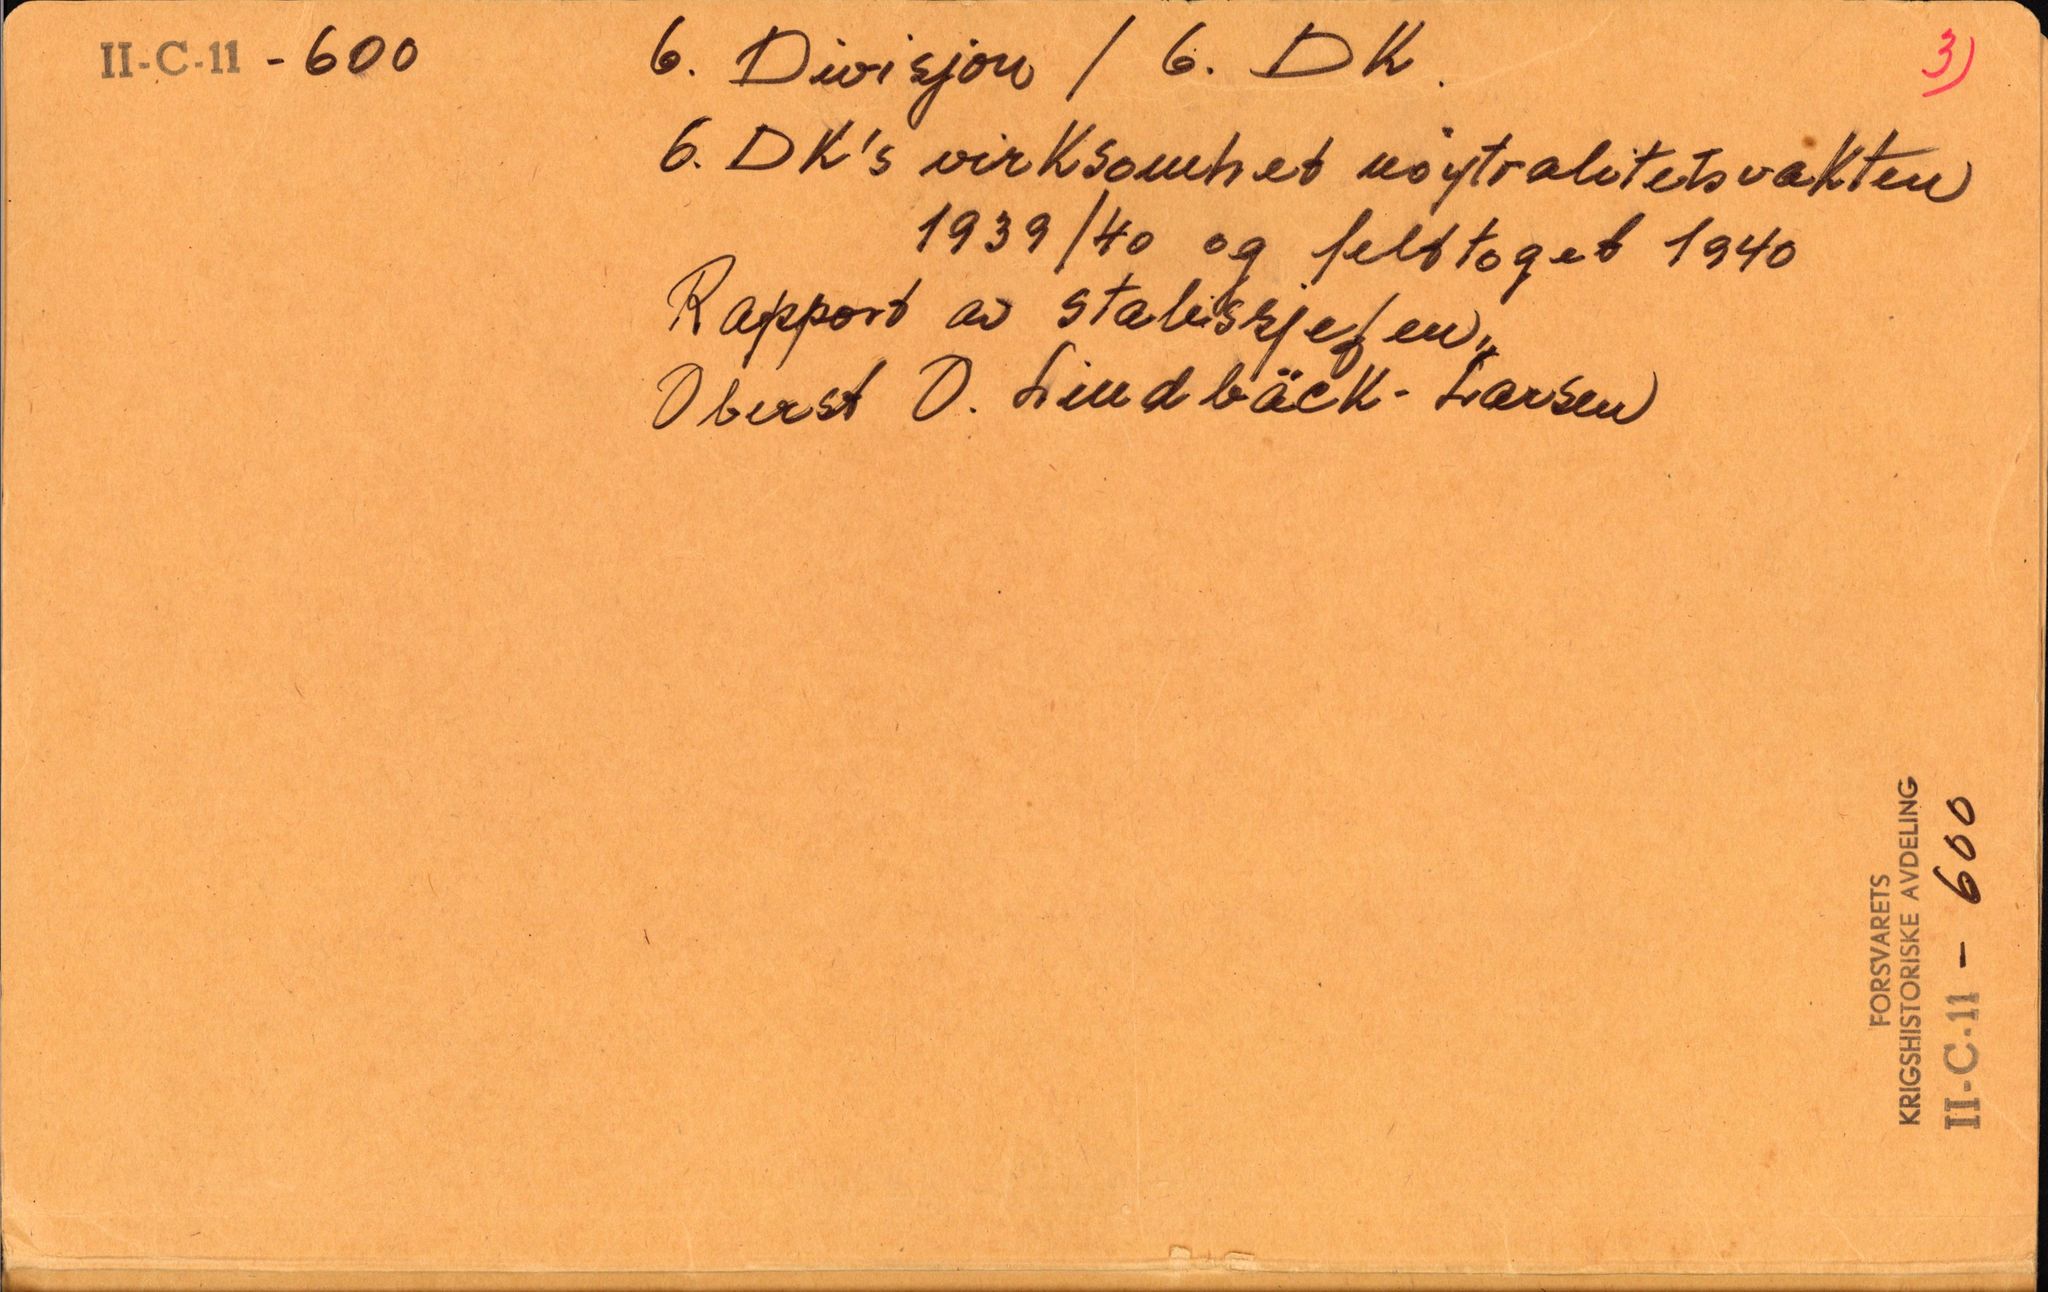 II-C-11 - 600
6. Divisjon / 6. DK.
3)
6. DK's virksomhet nøytralitetsvakten
1939/40 og felttoget 1940
Rapport av stabssjefen,
Oberst O. Lindbäck-Larsen
FORSVARETS
KRIGSHISTORISKE AVDELING
II-C-11 - 600